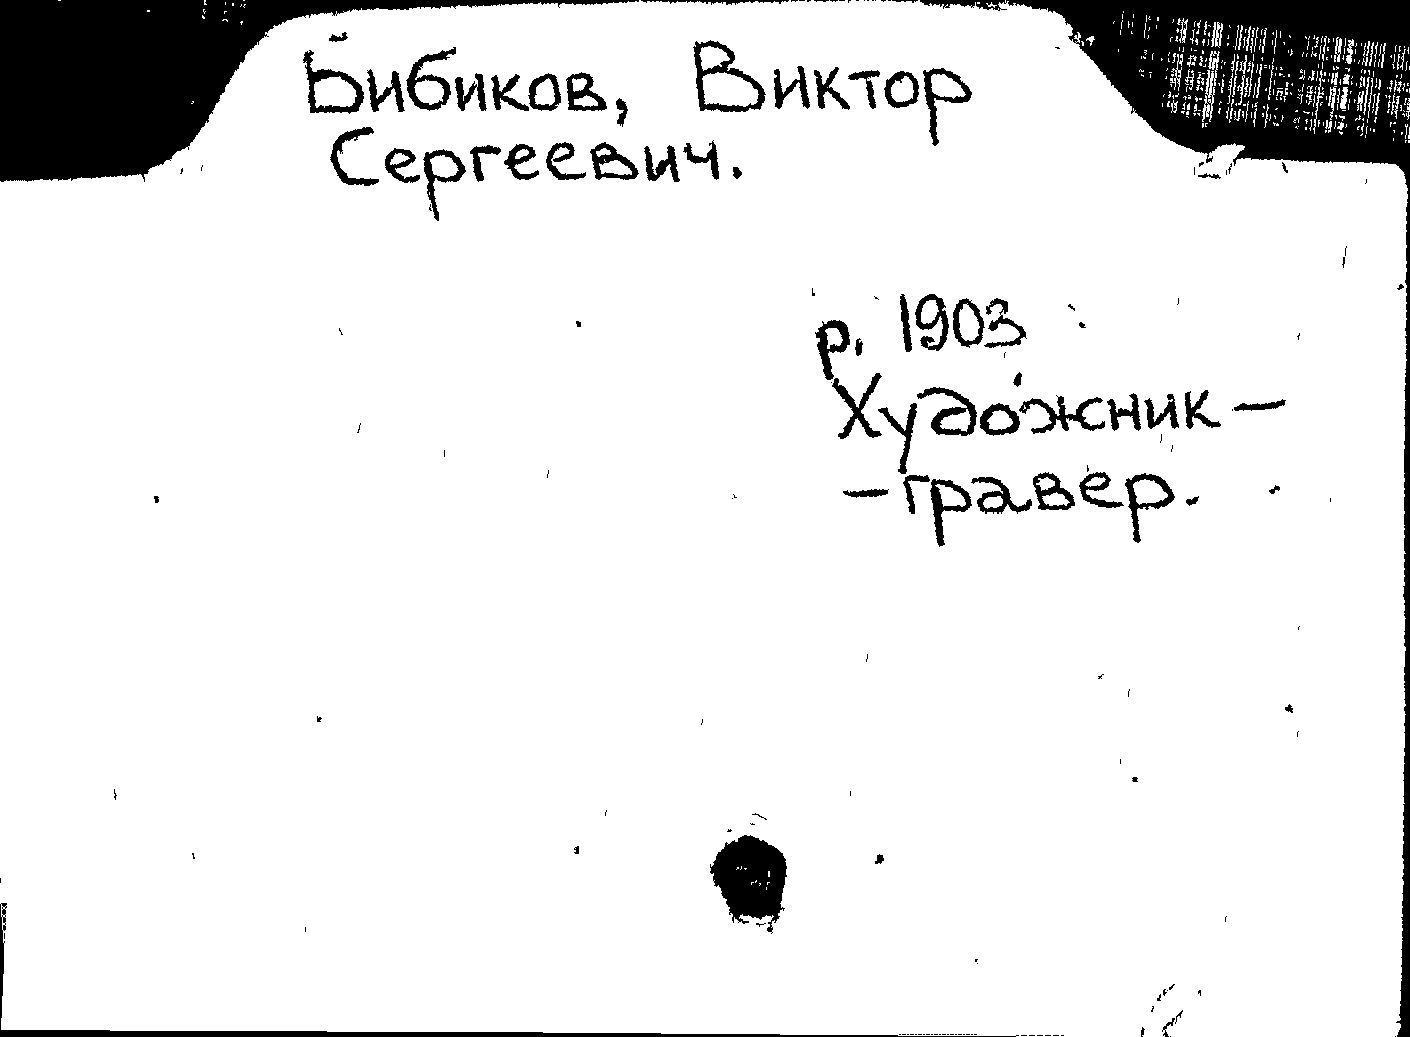 Бибиков, Виктор
Сергеевич.
р. 1903
Художник-
-гравер.